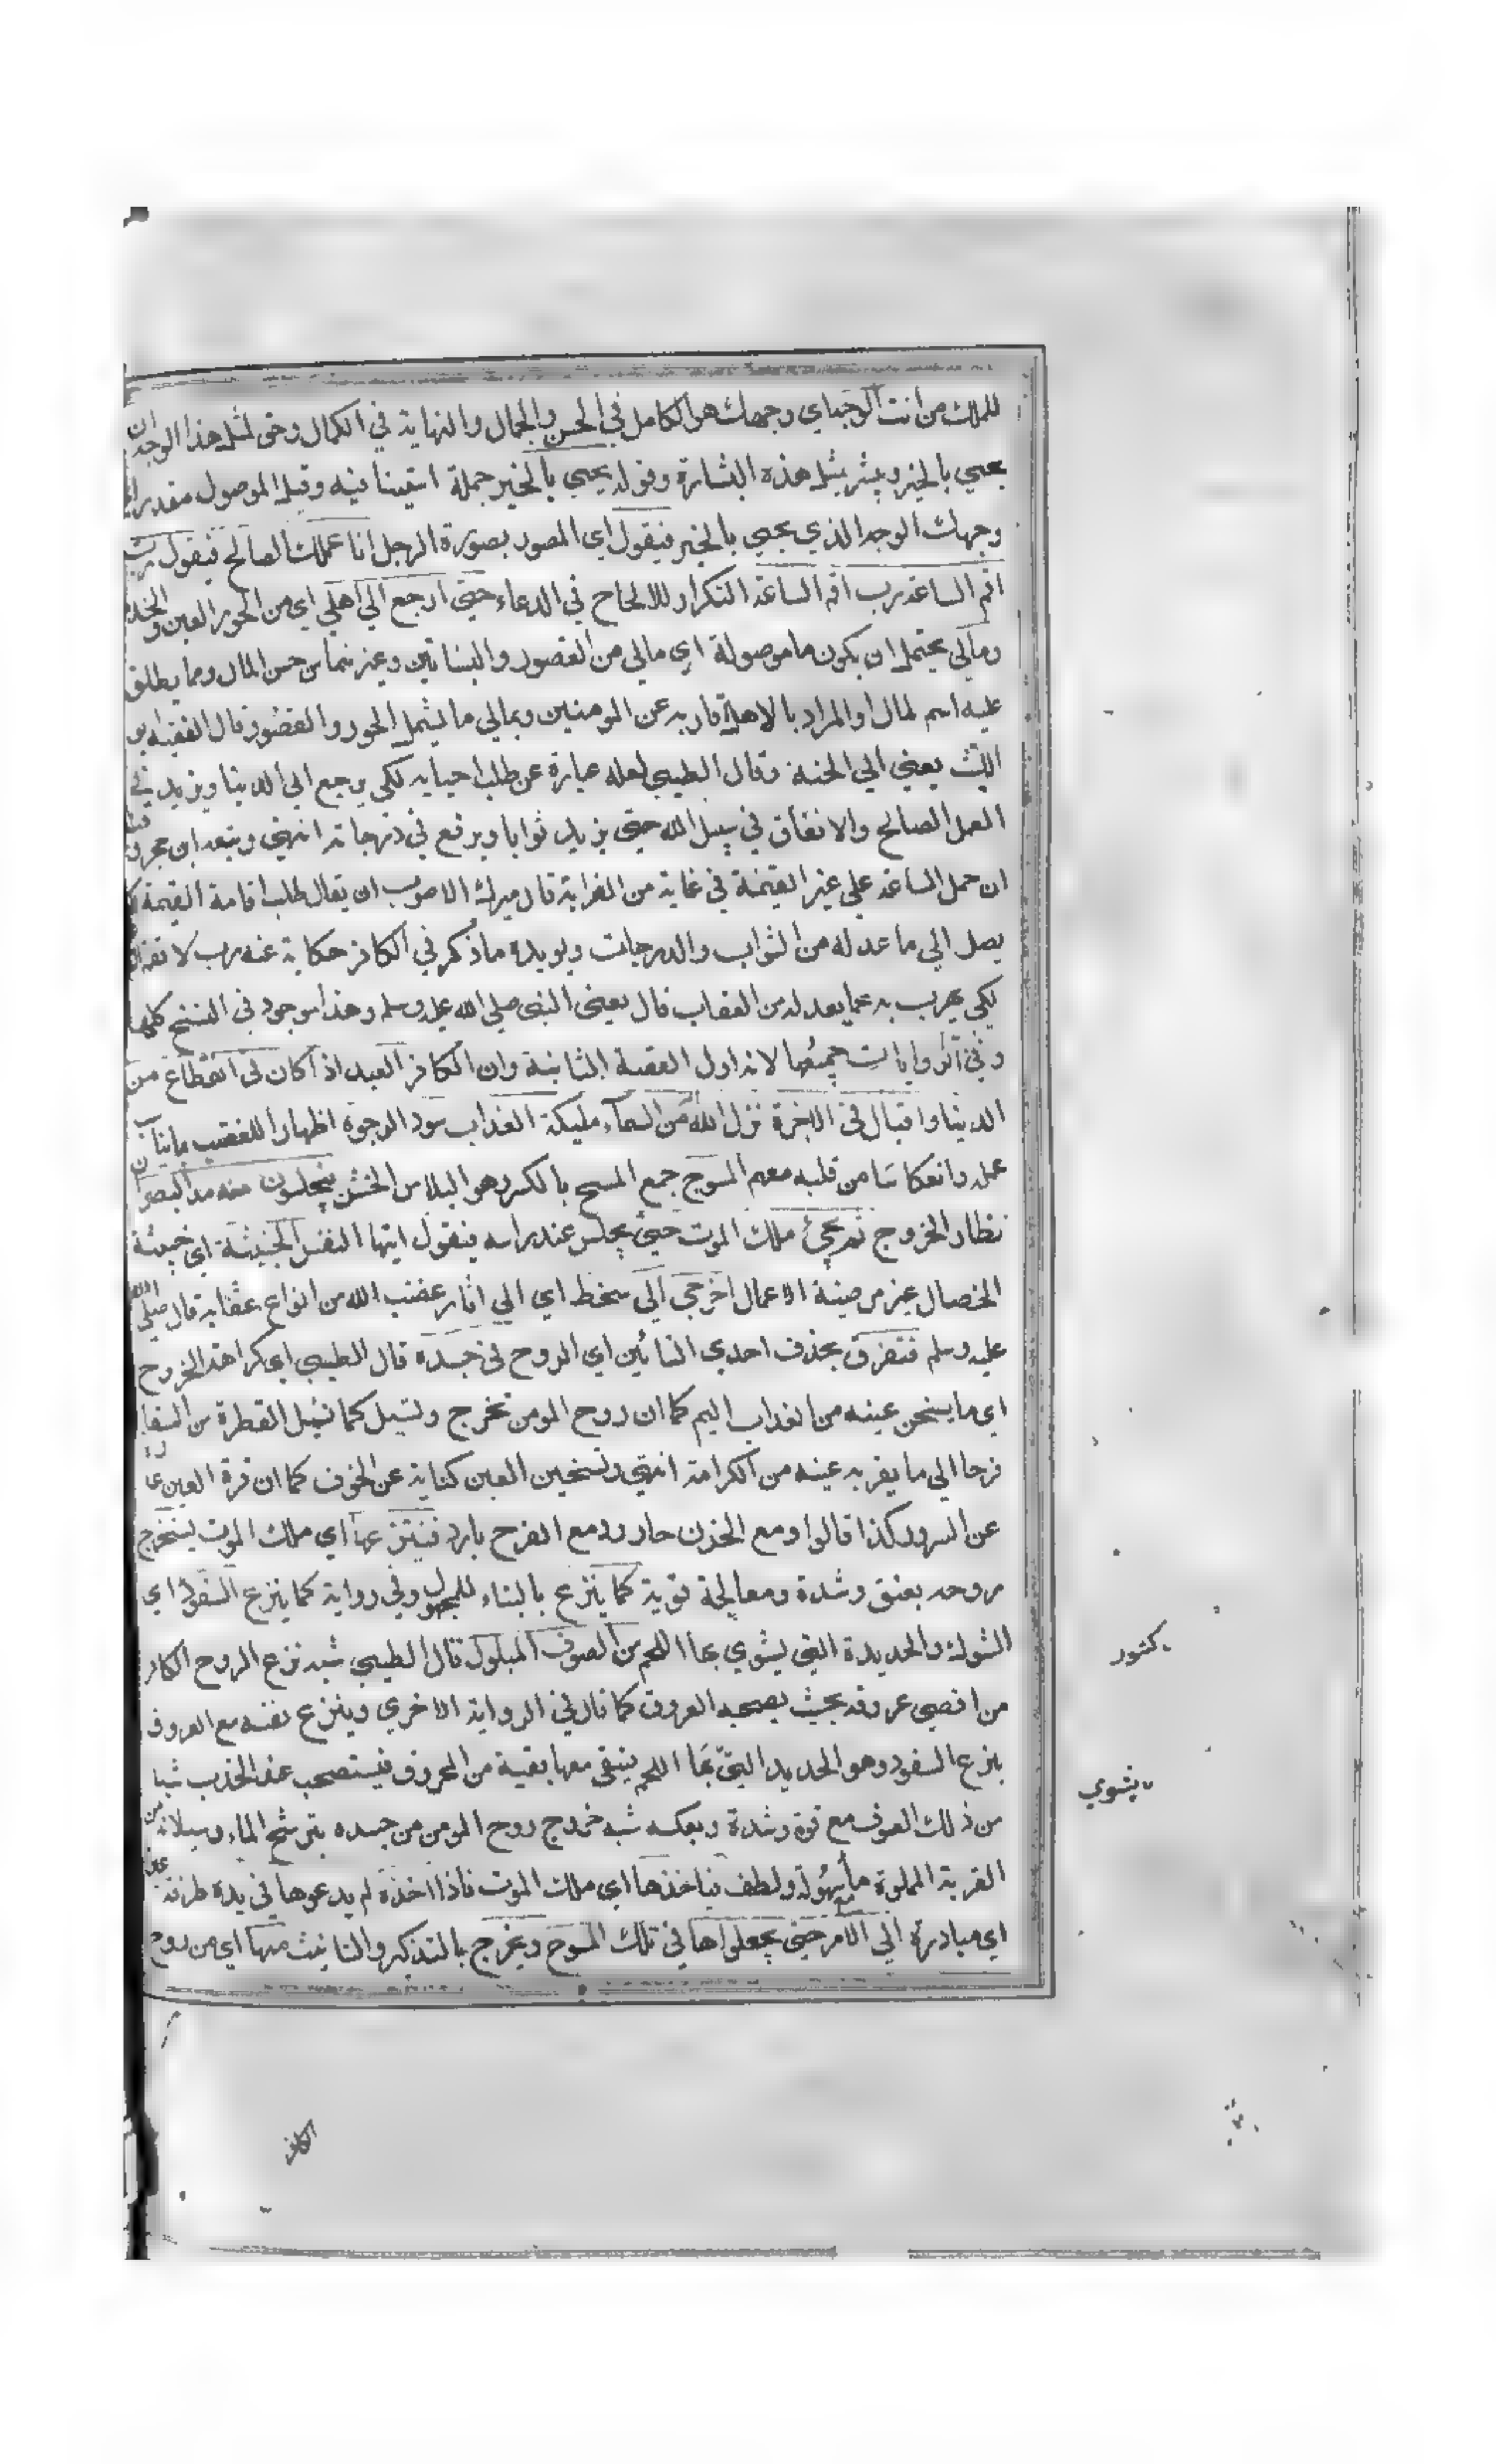 للملك من انت الوجه اي وجهك هو الكامل في الحسن والجمال والنهاية في الكمال وحق لمثل هذا الوجه ان
يجيء بالخير ويبشر بمثل هذه البشارة وقوله يجيء بالخير جملة استينافية وقيل الموصول مقدر اي
وجهك الوجه الذي يجيء بالخير فيقول اي المصور بصورة الرجل انا عملك الصالح فيقول رب
اقم الساعة رب اقم الساعة التكرار للالحاح في الدعاء حتى ارجع الي اهلي اي من الحور العين والخدم
ومالي يحتمل ان يكون ما موصولة اي مالي من القصور والبساتين وغيرهما من حسن المال ومما يطلق
عليه اسم المال او المراد بالاهل اقاربه عن المومنين وبمالي ما يشمل الحور والقصور قال الفقيه ابو
الليث يعني الي الجنة وقال الطيبي لعله عبارة عن طلب احيايه لكي يرجع الي الدنيا ويزيد في
العمل الصالح والانفاق في سبيل الله حتى يزيد ثوابا ويرفع في درجاته انتهي وتبعه ابن حجر وفيه
ان حمل الساعة علي غير القيمة في غاية من الغرابة قال ميرك الاصوب ان يقال طلب اقامة القيمة
يصل الي ما عد له من الثواب والدرجات ويويده ما ذكر في الكافر حكاية عنه رب لا تقم
لكي يهرب به عما يعد له من العقاب قال يعني النبي صلي الله عليه وسلم وهذا موجود في النسخ كلها
وفي الروايات جميعها لانه اول القصة الثانية وان الكافر العبد اذا كان في انقطاع من
الدنيا واقبال في الاخرة نزل الله من السماء مليكة العذاب سود الوجوه اظهارا للغضب
عمله وانعكاسا من قلبه معهم المسوح جمع المسح بالكسر وهو البلاس الخشن فيجلسون منه مد البصر
نظار الخروج ثم يجيء ملك الموت حتى يجلس عند راسه فيقول ايتها النفس الخبيثة اي خبيثة
الخصال غير مرضية الاعمال اخرجي الي سخط اي الي اثار غضب الله من انواع عقابه قال صلي الله
عليه وسلم فتفرق بحذف احدي التائين اي الروح في جسده قال الطيبي اي كراهة الخروج
اي ما يسخن عينه من العذاب اليم كما ان روح المومن تخرج وتسيل كما تسيل القطرة من السقا
فرحا الي ما يقر به عينه من الكرامة انتهي وتسخين العين كناية عن الخوف كما ان قرة العين
عن السرور كذا قالوا ومع الحزن حار ومع الفرح بارد فينتزعها اي ملك الموت يستخرج
روحه بعنف وشدة ومعالجة قوية كما ينزع بالبناء للمجهول وفي رواية كما ينزع السفود اي
الشوك والحديدة التي يشوي بها اللحم من الصوف المبلول قال الطيبي شبه نزع الروح الكافر
من اقصي عروقه بحيث يصحبه العروق كما قال في الرواية الاخري وينزع نفسه مع العروق
بنزع السفود وهو الحديد التي بها اللحم يبقي معها بقية من المحروق فيستصحب عند الجذب شيا
من ذلك الصوف مع قوة وشدة وبعكسه شبه خروج روح المومن من جسده بترشح الماء وسيلانه من
القربة المملوة ماء بسهولة ولطف فياخذها اي ملك الموت فاذا اخذه لم يدعوها في يده طرفة عين
اي مبادرة الي الامر حتى يجعلواها في تلك المسوح ويخرج بالتذكير والتانيث منها اي من روح
يشوي
الكافر